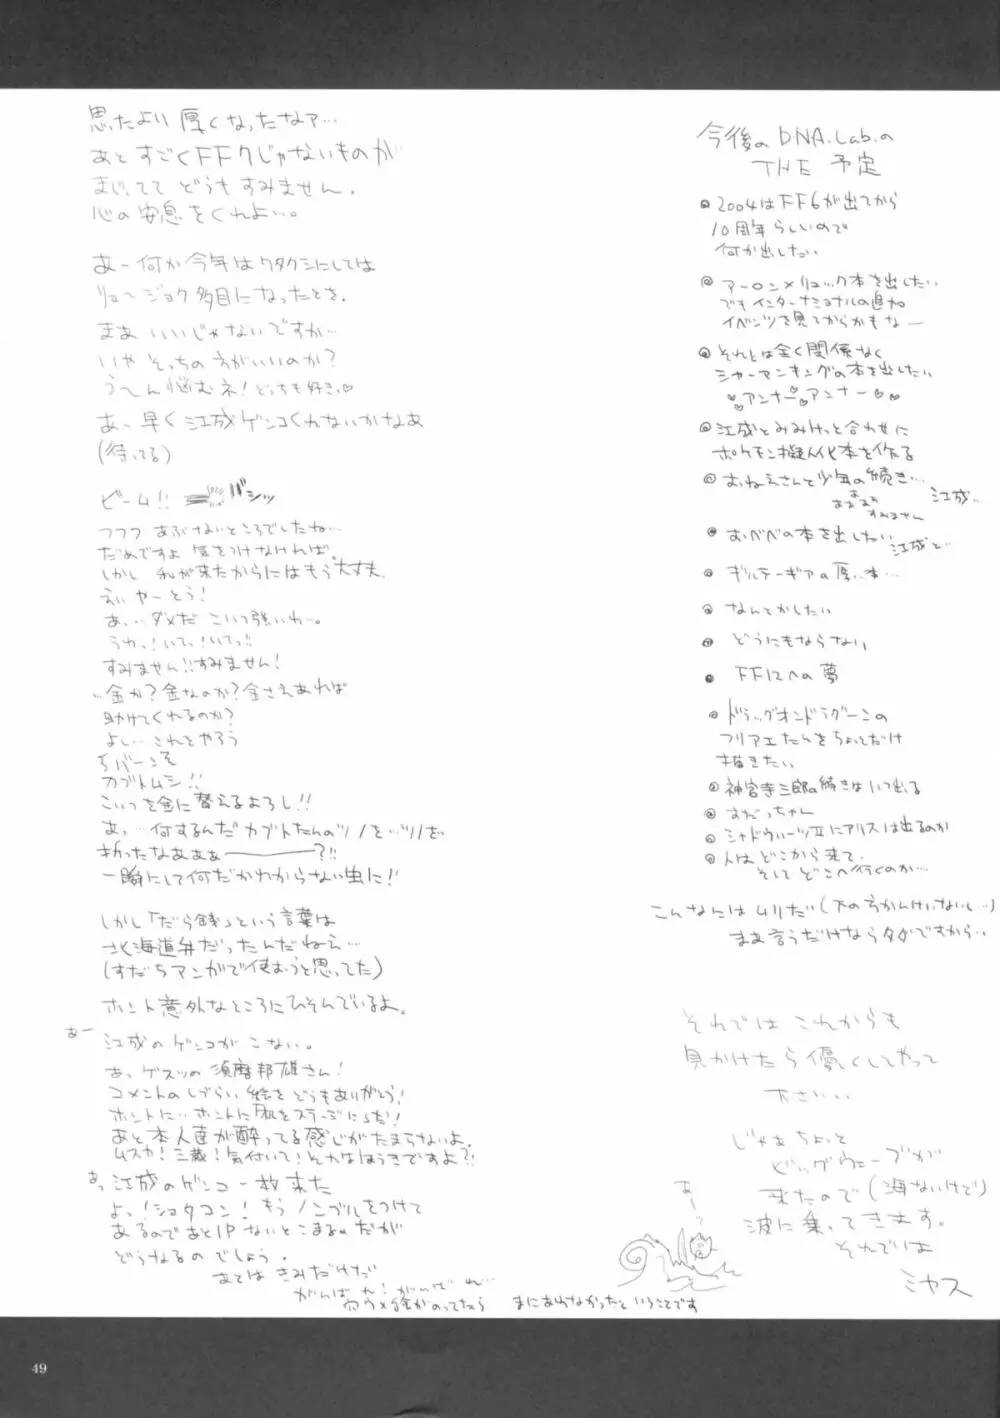 思ったより厚くなったなァ…
あと すごくFFクじゃないものが
まじってて どうもすみません。
心の安息をくれよぃ。
あー何か今年はワタクシにしては
リョージョク多目になったとき。
まあ いいじゃないですか…
いや そっちの方がいいのか?
う〜ん悩むネ!どっちも好きっ♡
あっ 早く江成ゲンコくれないかなあ
(待ってる)
ビーム!! バシッ
フフフ あぶないところでしたね…
だめですよ 気をつけなければ。
しかし 私が来たからにはもう大丈夫。
えい やー とう!
あっ…ダメだ こいつ強いわー。
うわっ!いてっ!いてっ!!
すみません!!すみません!
…金か?金なのか?金さえあれば
助けてくれるのか?
よし…これをやろう
カブトムシ!!
こいつを金に替えるよろし!!
あっ…何するんだ カブトたんのツノを…ツノを
折ったなあああ――?!!
一瞬にして何だかわからない虫に!!
しかし「だら銭」という言葉は
北海道弁だったんだねえ…
(すだちマンガで使おうと思ってた)
ホント意外なところにひそんでいるよ。
あー 江成のゲンコがこない。
あっ ゲスツの須磨邦雄さん!
コメントのしづらい絵をどうもありがとう!
あと本人達が酔ってる感じがたまらないよ。
ムスカ!三蔵!気付いて!それはほうきですよ?!
あっ 江成のゲンコ一枚来た
よっ!ショタコン! もうノンブルをつけて
あるのであと1P ないとこまるんだが
どうなるのでしょう。
あとは きみだけだ
がんばれ!がんばれ…
まにあわなかったということです
今後のDNA.Lab.の
THE 予定
◎2004はFF6が出てから
10周年らしいので
何か出したい
◎アーロン×リュック本を出したい
でもインターナショナルの追加
イベンツを見てからかもなー
◎それとは全く関係なく
シャーマンキングの本を出したい
アンナ アンナー
◎江成とみみけっと合わせに
ポケモン擬人化本を作る
◎おねえさんと少年の続き… 江成…
すみません
◎おべべの本を出したい 江成と…
◎ギルティーギアの厚い本…
◎なんとかしたい
◎どうにもならない
◎FF12への夢
◎ドラッグオンドラグーンの
フリアエたんをちょっとだけ
描きたい
◎神宮寺三郎の続きはいつ出る
◎すだっちゃん
◎シャドウハーツⅡにアリスは出るのか
◎人はどこから来て、
そして どこへ行くのか…
こんなにはムリだ(下の方かんけいないし…)
まあ言うだけならタダですから…
それでは これからも
見かけたら優しくしてやって
下さいぃ
じゃあちょっと
ビッグウェーブが
来たので(海ないけど)
波に乗ってきます。
それでは
ミヤス
あー
49